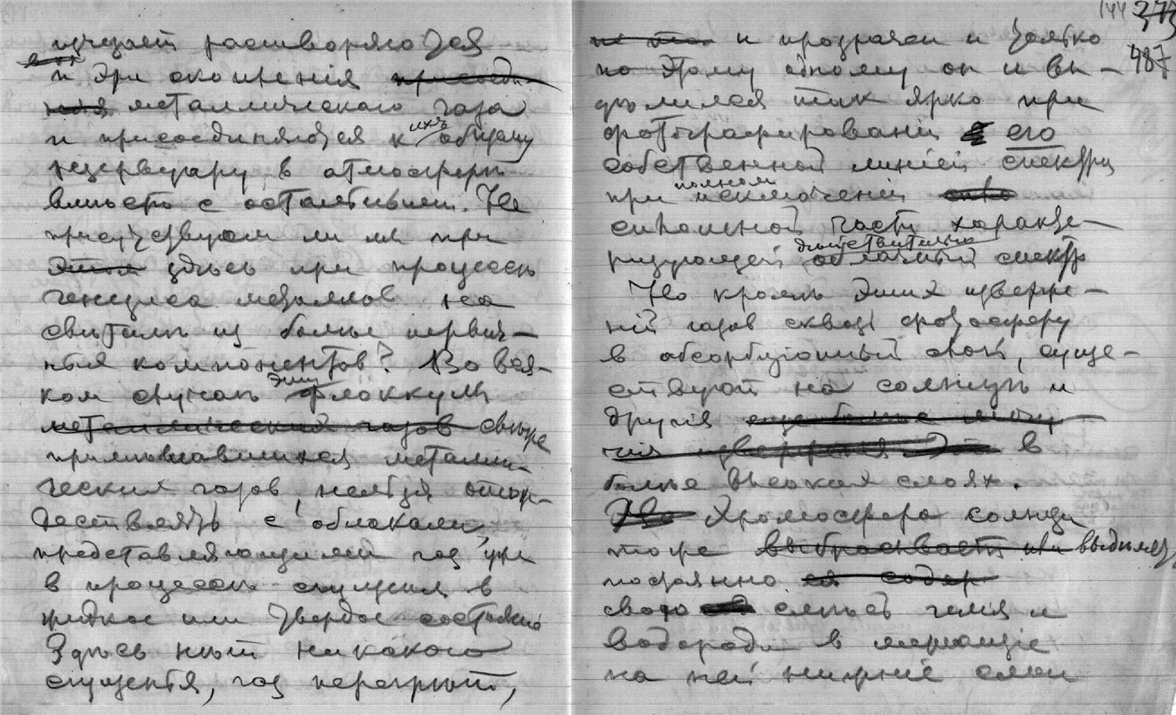 исчезает растворяются
и эти скопления присоед-
ния металлического газа
и присоединяются к ихъ общему
резервуару в атмосферѣ
вместѣ с остальными. Не
присутствуем ли мы при
этом здѣсь при процессѣ
генезиса металлов на
свѣтилѣ из болѣе первич-
ных компонентов? Во вся-
ком случаѣ эти флоккулы
металлических газов свыше
металли-
ческих газов нельзя отож-
дествлять с облаками,
представляющими газ уже
в процессѣ сгущения в
жидкое или твердое состояние
Здѣсь нѣт никакого
сгущенья, газ перегрѣт,
144 373
487
и прозрачен и только
по этому одному он и вы-
дѣлился так ярко при
фотографировании его
собственной линіей спектра
при полном исключеніи
сплошной части характе-
ризующей дѣйствительно облачный спектр
Но кромѣ этих изверже-
ній газов сквозь фотосферу
в абсорбціонный слой, суще-
ствуют на солнцѣ и
другія еще болѣе могу-
чія изверженія в
болѣе высоких слоях.
Хромосфера солнца
тоже выбрасывает или выдѣляет
постоянно
свою смѣсь гелія и
водорода в лежащіе
на ней нижніе слои